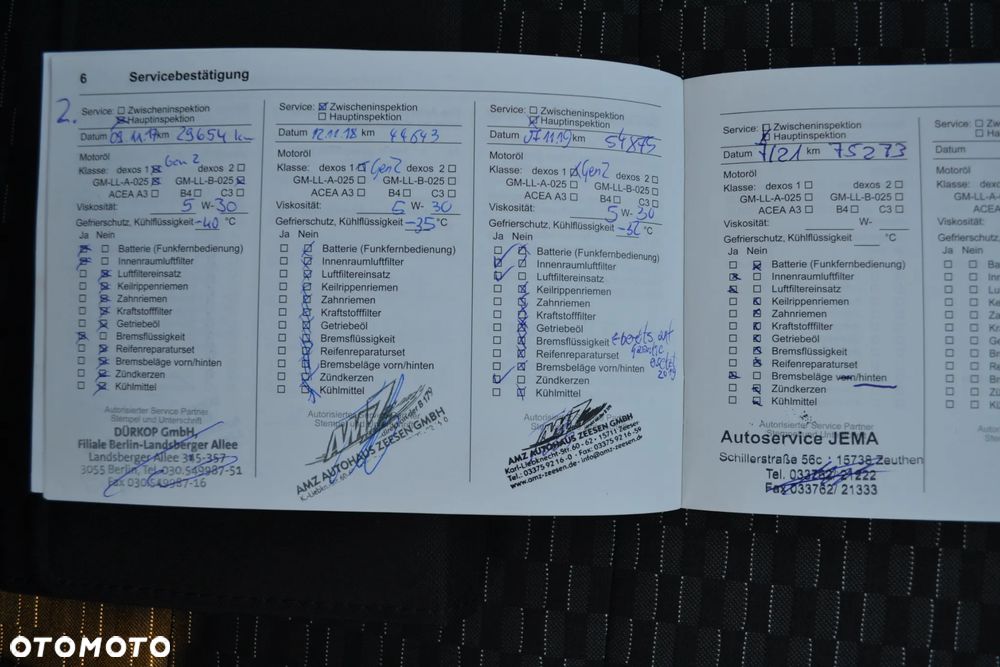 6 Servicebestätigung
2.
Service: Zwischeninspektion
Hauptinspektion
Datum 09.11.17 km 29654 km
Motoröl Gen 2
Klasse: dexos 1 dexos 2
GM-LL-A-025 GM-LL-B-025
ACEA A3 B4 C3
Viskosität: 5 W- 30
Gefrierschutz, Kühlflüssigkeit -40 °C
Ja Nein
Batterie (Funkfernbedienung)
Innenraumluftfilter
Luftfiltereinsatz
Keilrippenriemen
Zahnriemen
Kraftstofffilter
Getriebeöl
Bremsflüssigkeit
Reifenreparaturset
Bremsbeläge vorn/hinten
Zündkerzen
Kühlmittel
Autorisierter Service Partner
Stempel und Unterschrift
DÜRKOP GmbH
Filiale Berlin-Landsberger Allee
Landsberger Allee 315-357
3055 Berlin, Tel. 030.549987-51
Fax 030.549987-16
Service: Zwischeninspektion
Hauptinspektion
Datum 12.11.18 km 44643
Motoröl
Klasse: dexos 1 Gen2 dexos 2
GM-LL-A-025 GM-LL-B-025
ACEA A3 B4 C3
Viskosität: 5 W- 30
Gefrierschutz, Kühlflüssigkeit -35 °C
Ja Nein
Batterie (Funkfernbedienung)
Innenraumluftfilter
Luftfiltereinsatz
Keilrippenriemen
Zahnriemen
Kraftstofffilter
Getriebeöl
Bremsflüssigkeit
Reifenreparaturset
Bremsbeläge vorn/hinten
Zündkerzen
Kühlmittel
Autorisierter Service
AMZ AUTOHAUS ZEESEN GMBH
Service: Zwischeninspektion
Hauptinspektion
Datum 07.11.19 km 54875
Motoröl
Klasse: dexos 1 Gen2 dexos 2
GM-LL-A-025 GM-LL-B-025
ACEA A3 B4 C3
Viskosität: 5 W- 30
Gefrierschutz, Kühlflüssigkeit °C
Ja Nein
Batterie (Funkfernbedienung)
Innenraumluftfilter
Luftfiltereinsatz
Keilrippenriemen
Zahnriemen
Kraftstofffilter
Getriebeöl
Bremsflüssigkeit
Reifenreparaturset
Bremsbeläge vorn/hinten
Zündkerzen
Kühlmittel
AMZ AUTOHAUS ZEESEN GMBH
Karl-Liebknecht-Str. 60-62 · 15711 Zeesen
Tel.: 03375 92 16-0 · Fax: 03375 92 16-59
www.amz-zeesen.de · info@amz-zeesen.de
Service: Zwischeninspektion
Hauptinspektion
Datum 7/21 km 75273
Motoröl
Klasse: dexos 1 dexos 2
GM-LL-A-025 GM-LL-B-025
ACEA A3 B4 C3
Viskosität: W-
Gefrierschutz, Kühlflüssigkeit °C
Ja Nein
Batterie (Funkfernbedienung)
Innenraumluftfilter
Luftfiltereinsatz
Keilrippenriemen
Zahnriemen
Kraftstofffilter
Getriebeöl
Bremsflüssigkeit
Reifenreparaturset
Bremsbeläge vorn/hinten
Zündkerzen
Kühlmittel
Autoservice JEMA
Schillerstraße 56c · 15738 Zeuthen
Tel. 033762/ 21222
Fax 033762/ 21333
Service:
Datum
Motoröl
Klasse:
Viskosität:
Gefrierschutz,
Ja Nein
OTOMOTO